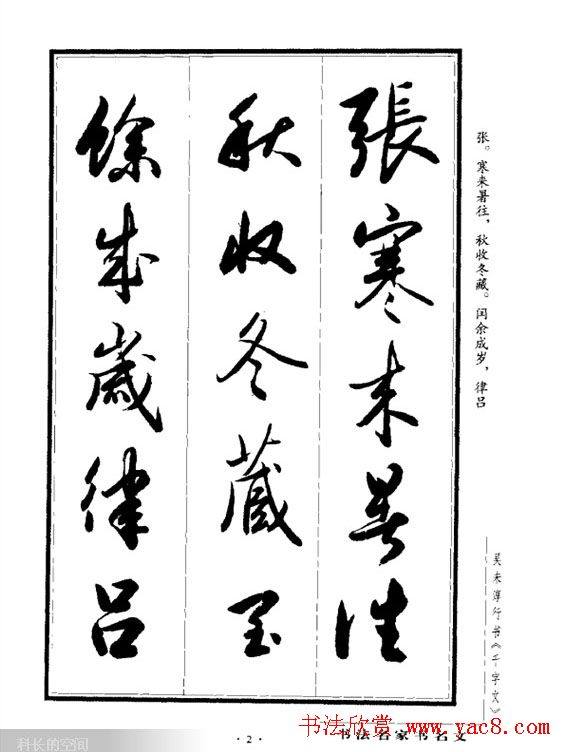 張寒来暑往
秋收冬藏閏
餘成歲律呂
张。寒来暑往，秋收冬藏。闰余成岁，律吕
吴未淳行书《千字文》
书法名家书名文
· 2 ·
书法欣赏 www.yac8.com
科长的空间